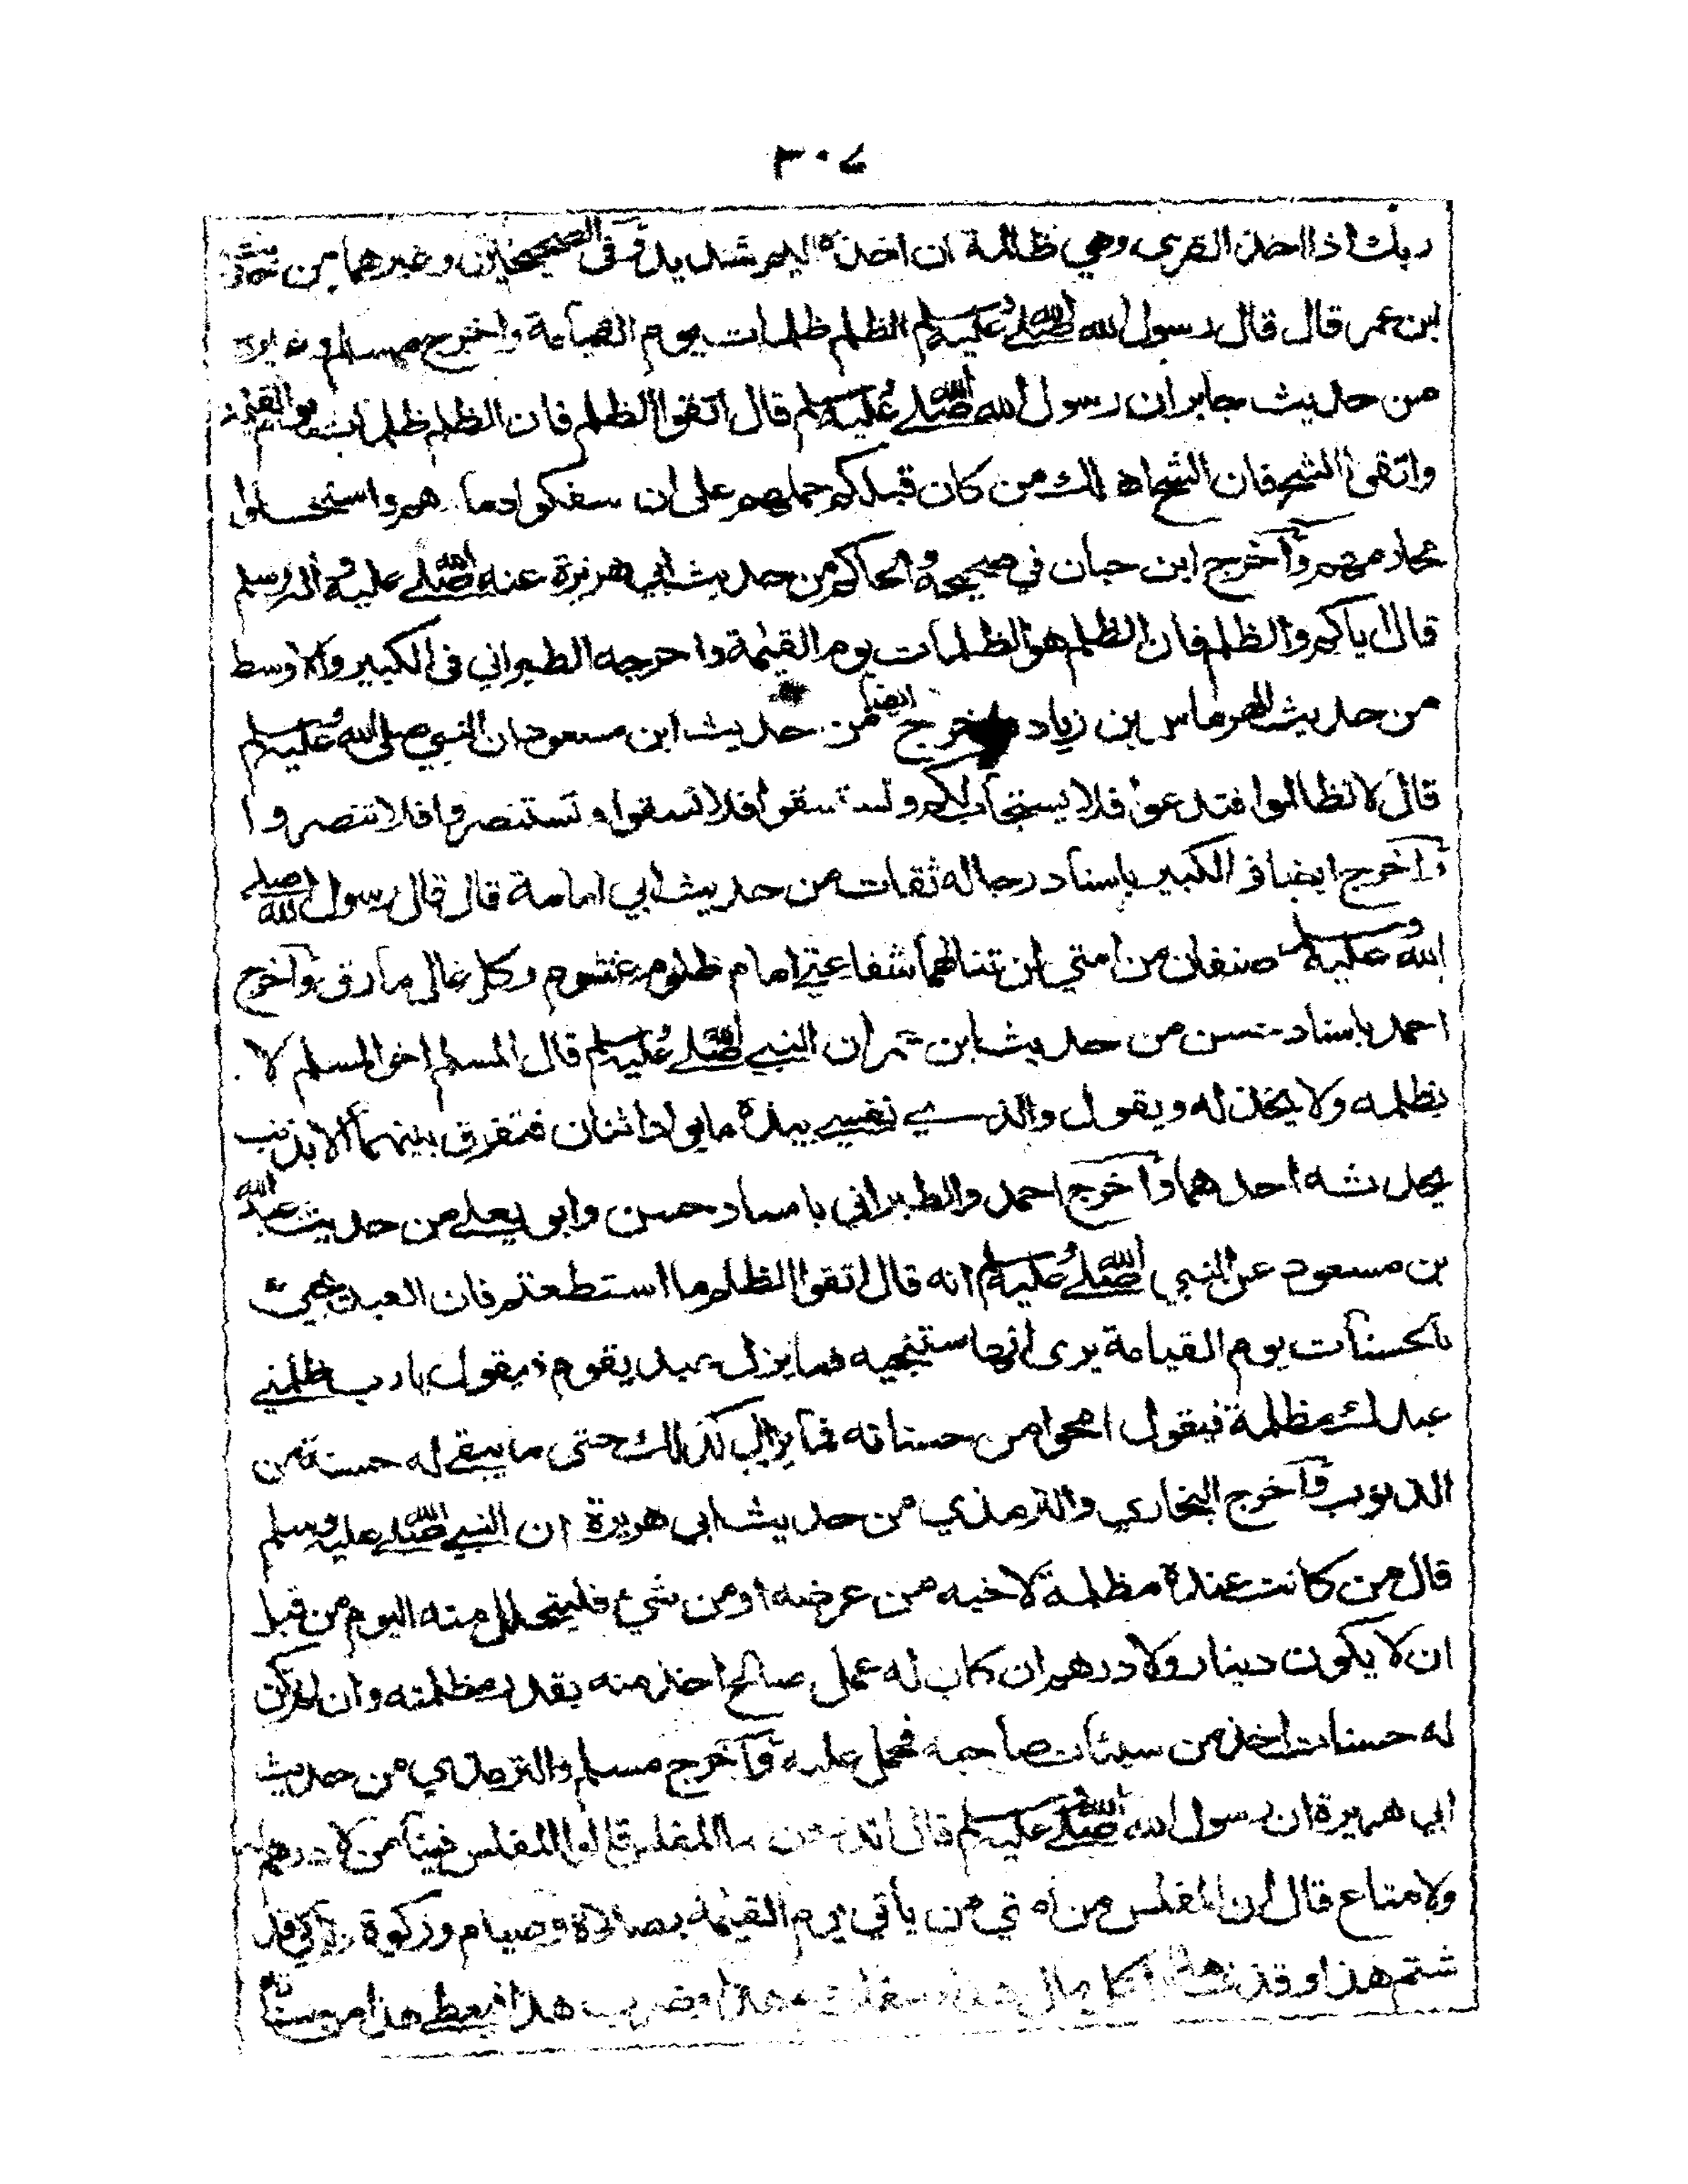 ٣٠٧
ربك اذا اخذ القرى وهي ظالمة ان اخذه اليم شديد وفى الصحيحين وغيرهما من حديث
ابن عمر قال قال رسول الله صلى الله عليه وسلم الظلم ظلمات يوم القيامة واخرج مسلم وغيره
من حديث جابر ان رسول الله صلى الله عليه وسلم قال اتقوا الظلم فان الظلم ظلمات يوم القيمة
واتقوا الشح فان الشح اهلك من كان قبلكم حملهم على ان سفكوا دماءهم واستحلوا
محارمهم وآخرج ابن حبان في صحيحه والحاكم من حديث ابي هريرة عنه صلى الله عليه وآله وسلم
قال اياكم والظلم فان الظلم هو الظلمات يوم القيمة واخرجه الطبراني فى الكبير والاوسط
من حديث الهرماس بن زياد واخرج ايضا من حديث ابن مسعود ان النبي صلى الله عليه وسلم
قال لا تظالموا فتدعوا فلا يستجاب لكم وتستسقوا فلا تسقوا وتستنصروا فلا تنصروا
وآخرج ايضا فى الكبير باسناد رجاله ثقات من حديث ابي امامة قال قال رسول الله صلى
الله عليه وسلم صنفان من امتي لن تنالهما شفاعتي امام ظلوم غشوم وكل غال مارق وآخرج
احمد باسناد حسن من حديث ابن عمر ان النبي صلى الله عليه وسلم قال المسلم اخو المسلم لا
يظلمه ولا يخذله ويقول والذي نفسي بيده ما تواد اثنان فتفرق بينهما الا بذنب
يحدثه احدهما وآخرج احمد والطبراني باسناد حسن وابو يعلى من حديث عبد الله
بن مسعود عن النبي صلى الله عليه وسلم انه قال اتقوا الظلم ما استطعتم فان العبد يجيء
بالحسنات يوم القيامة يرى انها ستنجيه فما يزال عبد يقوم فيقول يارب ظلمني
عبدك مظلمة فيقول امحوا من حسناته فما يزال كذلك حتى ما يبقى له حسنة من
الذنوب وآخرج البخاري والترمذي من حديث ابي هريرة ان النبي صلى الله عليه وسلم
قال من كانت عنده مظلمة لاخيه من عرضه او من شيء فليتحلل منه اليوم من قبل
ان لا يكون دينار ولا درهم ان كان له عمل صالح اخذ منه بقدر مظلمته وان لم تكن
له حسنات اخذ من سيئات صاحبه فحمل عليه وآخرج مسلم والترمذي من حديث
ابي هريرة ان رسول الله صلى الله عليه وسلم قال اتدرون ما المفلس قالوا المفلس فينا من لا درهم له
ولا متاع قال ان المفلس من امتي من يأتي يوم القيمة بصلاة وصيام وزكوة ويأتي قد
شتم هذا وقذف هذا واكل مال هذا وسفك دم هذا وضرب هذا فيعطى هذا من حسناته